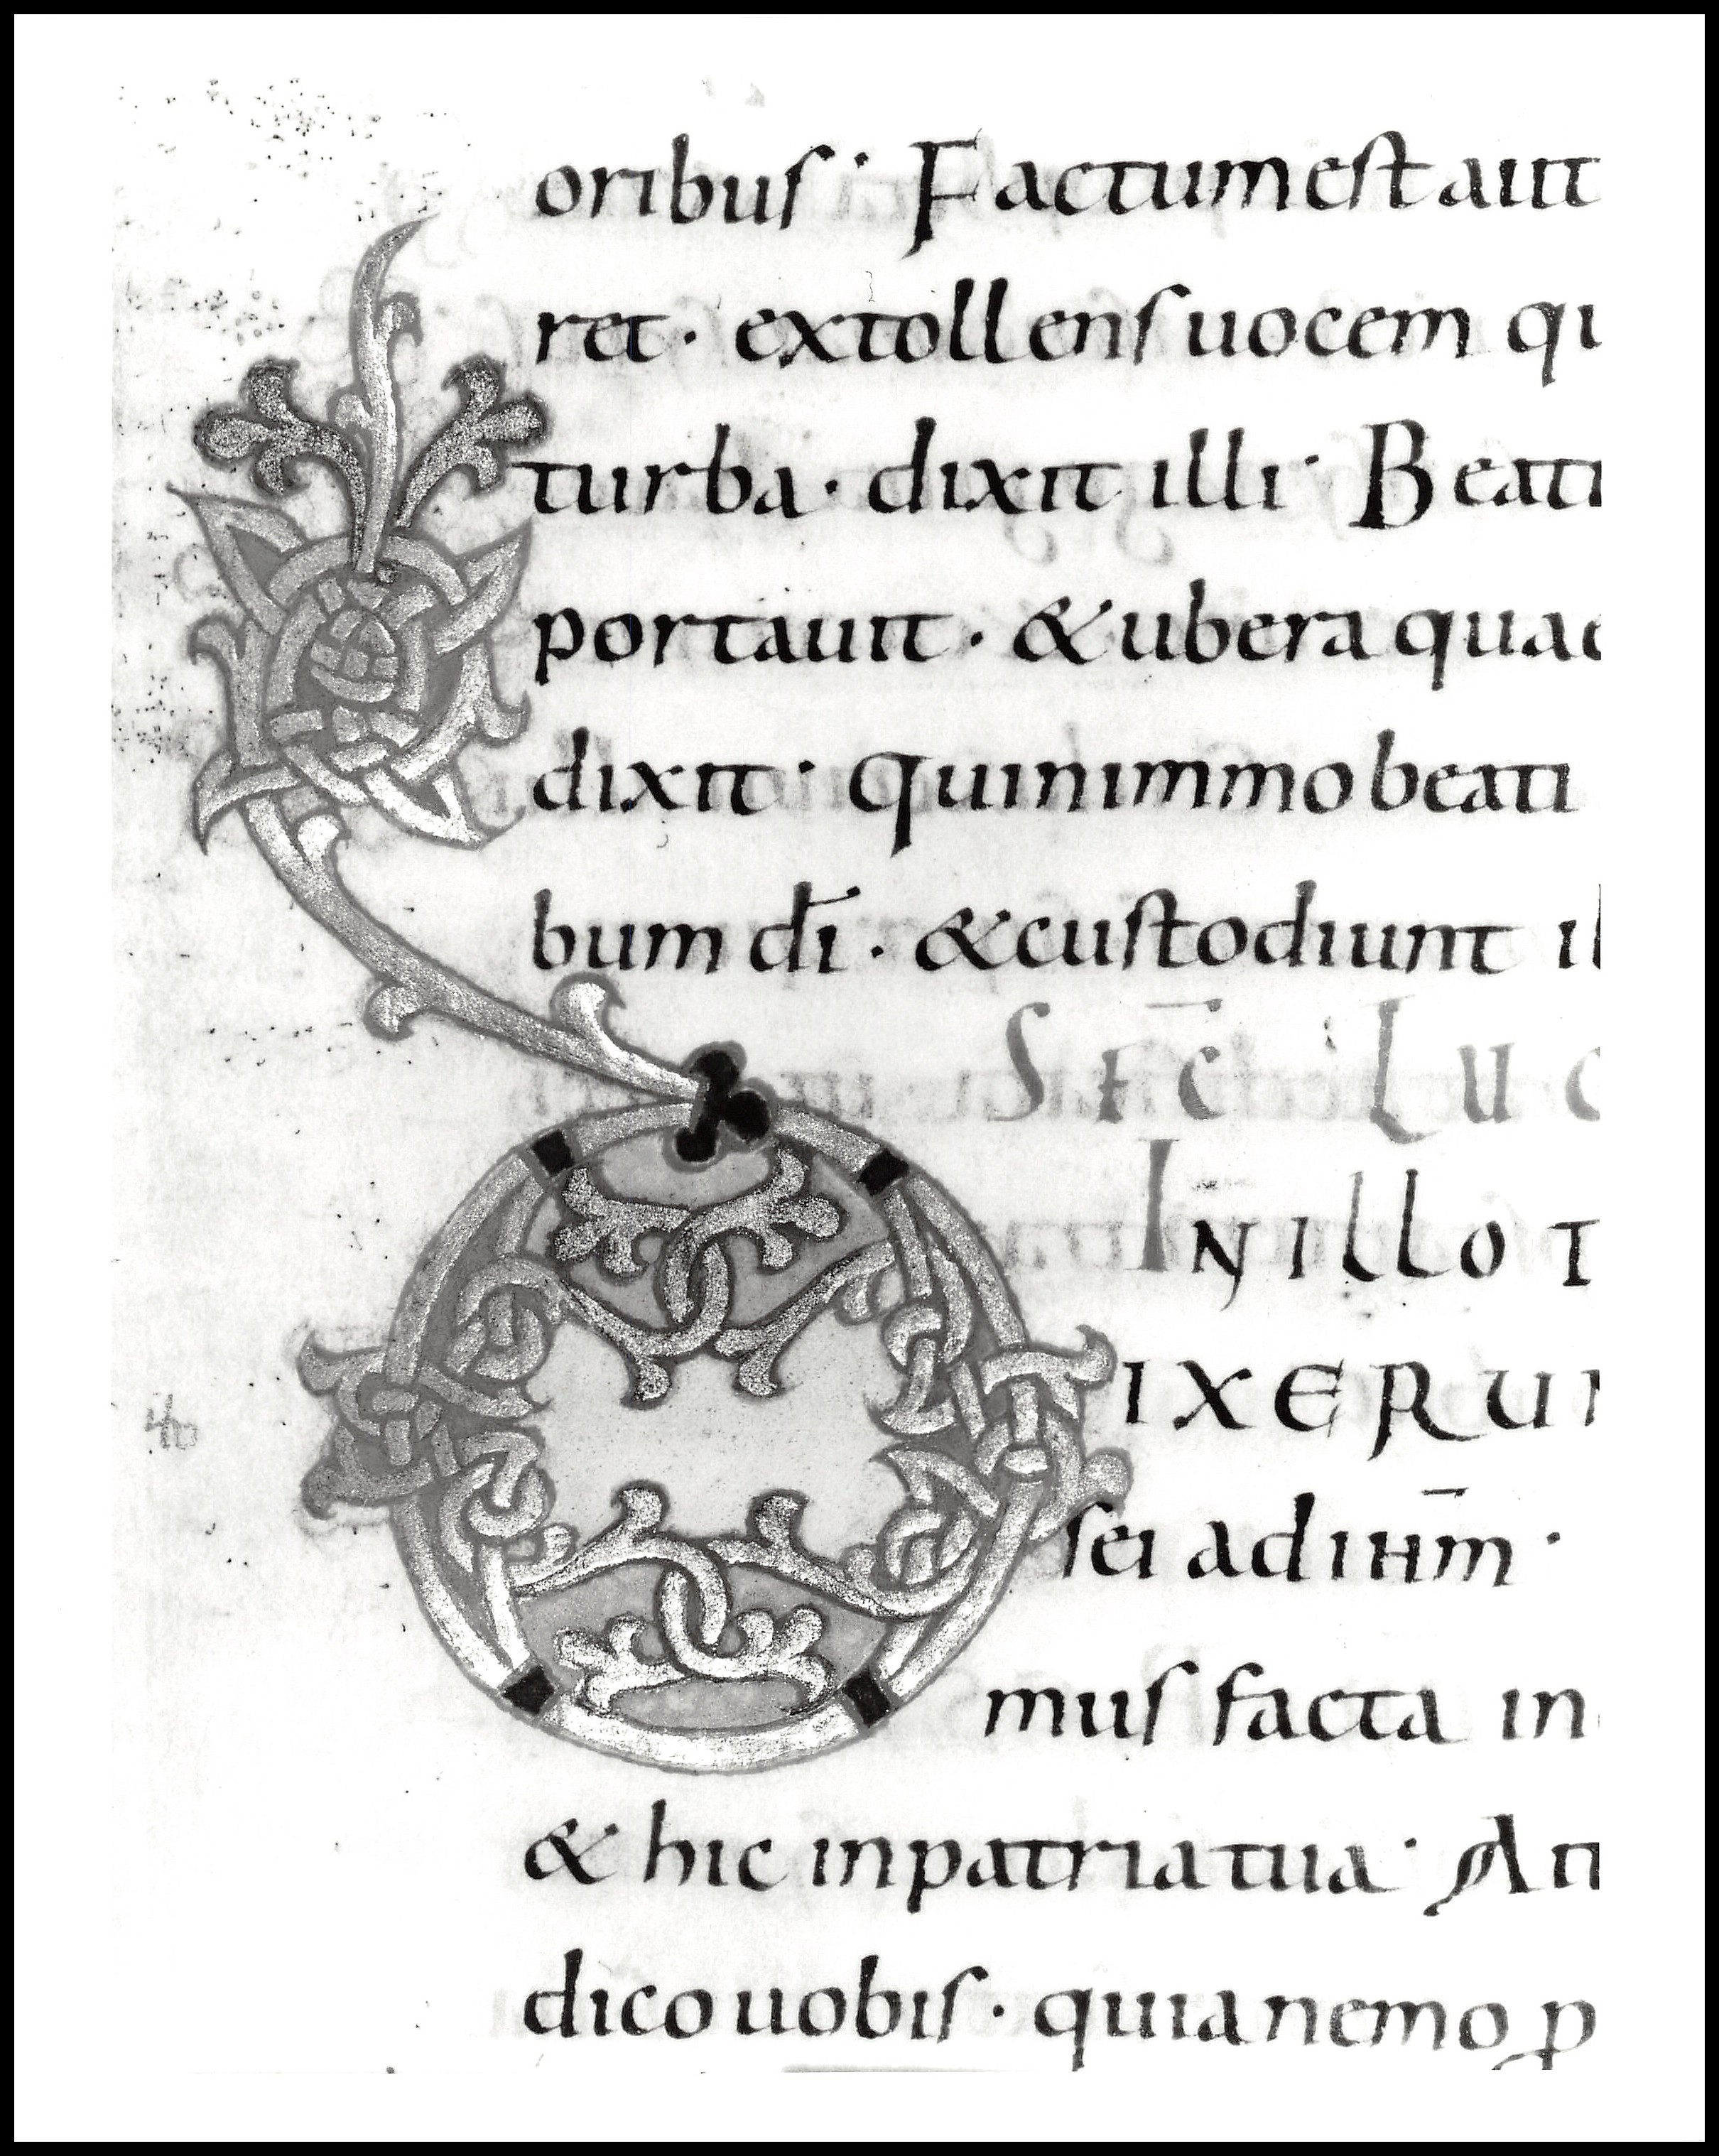 oribus · Factum est aut
ret · extollens uocem qu
turba · dixit illi · Beat
portauit · & ubera quae
dixit · quinimmo beati
bum dī · & custodiunt il
Sec̄ Luc
In̄ illo T
DIXERUN
sei ad ihm̄ ·
mus facta in
& hic in patria tua · A
dico uobis · quia nemo p